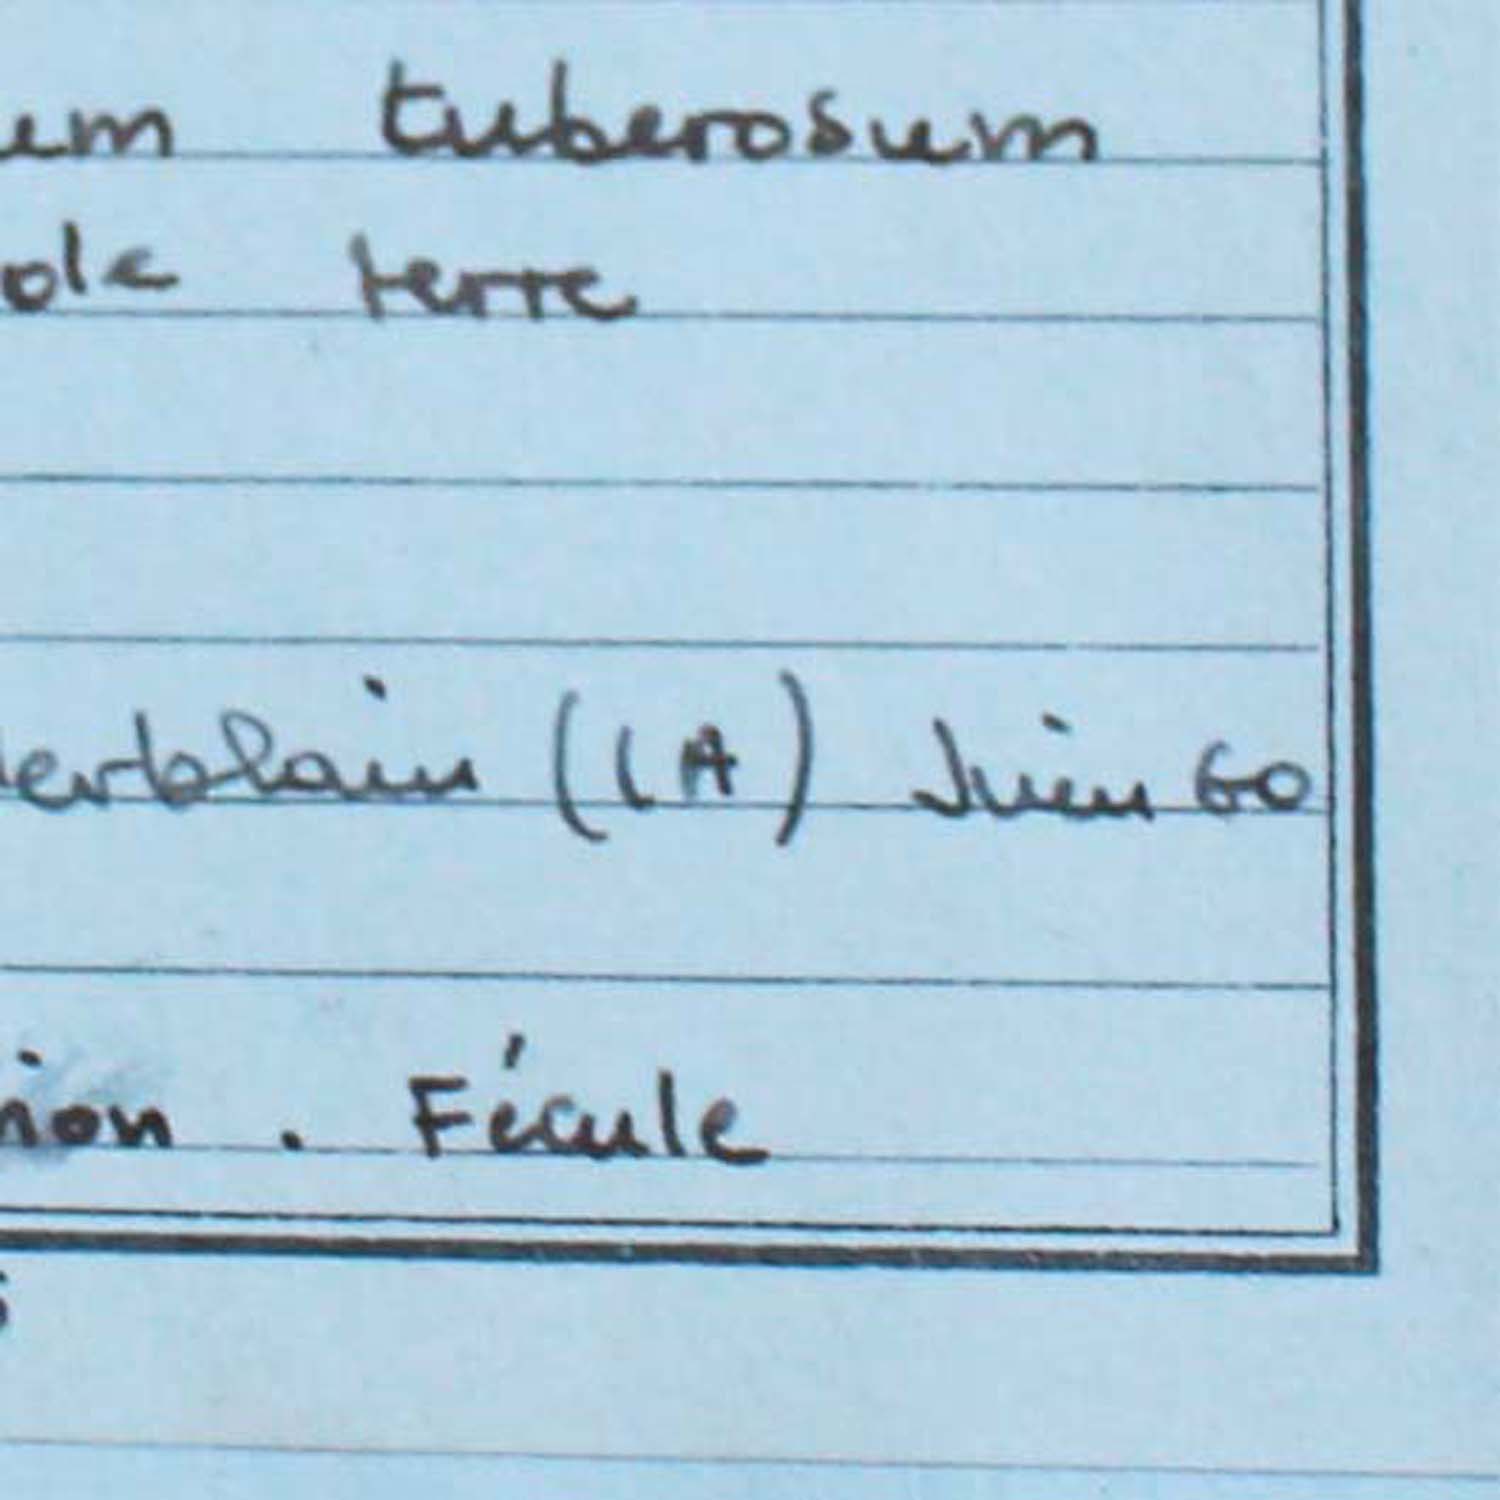 um tuberosum
de terre
erblain (LA) Juin 60
ion . Fécule